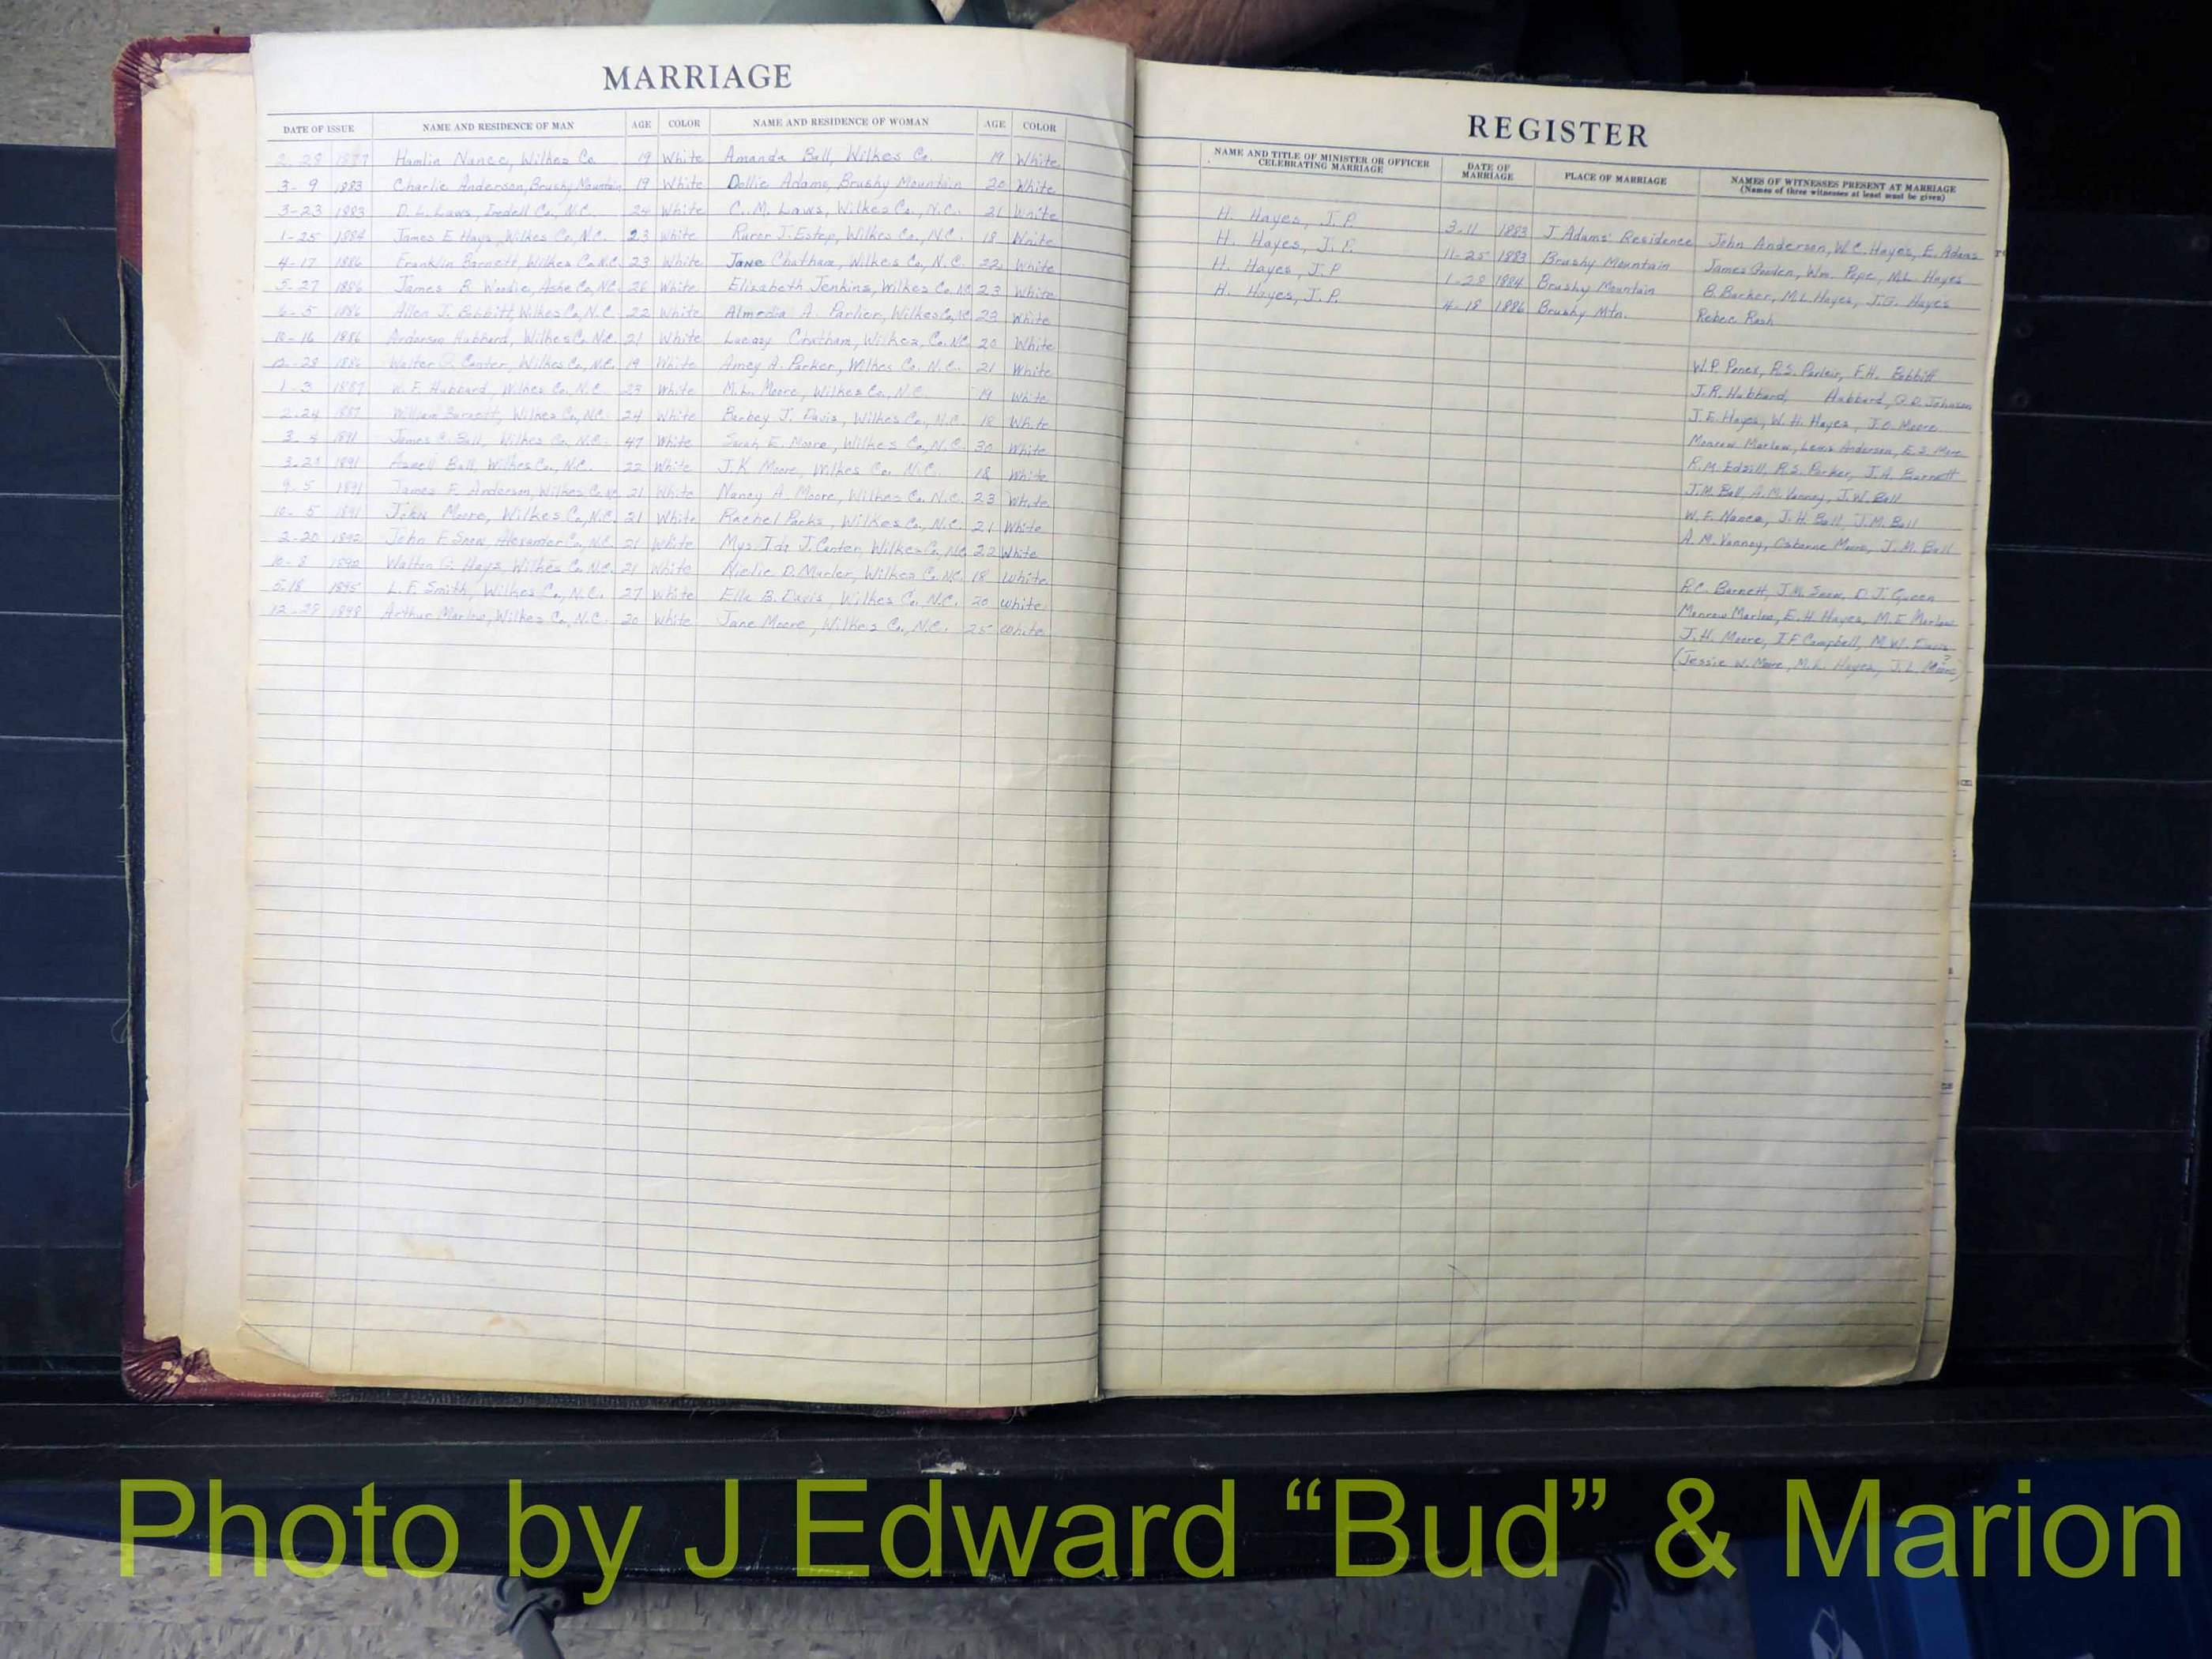 MARRIAGE
DATE OF ISSUE NAME AND RESIDENCE OF MAN AGE COLOR NAME AND RESIDENCE OF WOMAN AGE COLOR
28 Hamlin Nance, Wilkes Co. 19 White Amanda Ball, Wilkes Co. 19 White
3-9 1883 Charlie Anderson, Brushy Mountain 19 White Dollie Adams, Brushy Mountain 20 White
3-23 1883 D. L. Laws, Iredell Co., N.C. 24 White C. M. Laws, Wilkes Co., N.C. 21 White
1-25 1884 James E Hays, Wilkes Co, N.C. 23 White J. Estep, Wilkes Co., N.C. 18 White
4-17 1886 Franklin Barnett, Wilkes Co. N.C. 23 White Jane Chatham, Wilkes Co., N.C. 22 White
5-27 1886 James B. Woodie, Ashe Co, N.C. 26 White Elizabeth Jenkins, Wilkes Co. NC 23 White
6-5 1886 Allen J. Bebbitt, Wilkes Co, N.C. 22 White Almedia A. Parlier, Wilkes Co, NC 23 White
10-16 1886 Anderson Hubbard, Wilkes Co. N.C. 21 White Chatham, Wilkes, Co. NC 20 White
12-28 1886 Walter Center, Wilkes Co, N.C. 19 White Amey A. Parker, Wilkes Co. N.C. 21 White
1-3 1887 W. F. Hubbard, Wilkes Co. N.C. 23 White M. L. Moore, Wilkes Co., N.C. 19 White
2-24 1887 William Barnett, Wilkes Co, N.C. 24 White Barbey J. Davis, Wilkes Co., N.C. 18 White
3-4 1891 James C. Ball, Wilkes Co, N.C. 47 White Sarah E. Moore, Wilkes Co, N.C. 30 White
1891 Ball, Wilkes Co., N.C. 22 White J. K Moore, Wilkes Co. N.C. 18 White
9-5 1891 James F. Anderson, Wilkes Co. NC 21 White Nancy A. Moore, Wilkes Co. N.C. 23 White
10-5 1891 John Moore, Wilkes Co, N.C. 21 White Rachel Parks, Wilkes Co., N.C. 21 White
2-20 1892 John F. Snow, Alexander Co., N.C. 21 White Mys. Ida J. Center, Wilkes Co, NC 22 White
10-8 Walton G. Hays, Wilkes Co. N.C. 21 White D. Marler, Wilkes Co. NC 18 White
5-18 1895 L. F. Smith, Wilkes Co., N.C. 27 White Ella B. Davis, Wilkes Co., N.C. 20 White
12-28 1898 Arthur Marlow, Wilkes Co, N.C. 20 White Jane Moore, Wilkes Co., N.C. 25 White
REGISTER
NAME AND TITLE OF MINISTER OR OFFICER CELEBRATING MARRIAGE DATE OF MARRIAGE PLACE OF MARRIAGE NAMES OF WITNESSES PRESENT AT MARRIAGE
(Names of three witnesses at least must be given)
H. Hayes, J.P. 3-11 1883 J. Adams' Residence John Anderson, W.C. Hayes, E. Adams
H. Hayes, J.P. 11-25 1883 Brushy Mountain James Gooden, Wm. Pope, M.L. Hayes
H. Hayes, J.P 1-28 1884 Brushy Mountain B. Barker, M.L. Hayes, J.G. Hayes
H. Hayes, J.P. 4-18 1886 Brushy Mtn. Rebec Rash
W.P. R.S. Parlier, F.H. Bebbitt
J.R. Hubbard, Hubbard, Johnson
J.E. Hayes, W.H. Hayes, J.O. Moore
Monrow Marlow, Lewis Anderson, E.S. Moore
R.M. R.S. Parker, J.A. Barnett
J.M. Ball, A.M. Vannoy, J.W. Ball
W.F. Nance, J.H. Ball, J.M. Ball
A.M. Vannoy, Osborne Moore, J.M. Ball
R.C. Barnett, J.M. Snow, D.J. Queen
Monrow Marlow, E.H. Hayes, M.E Marlow
J.H. Moore, I.F Campbell, M.W. Davis
(Jessie W. Moore, M.L. Hayes, J.L. Moore?)
Photo by J Edward “Bud” & Marion